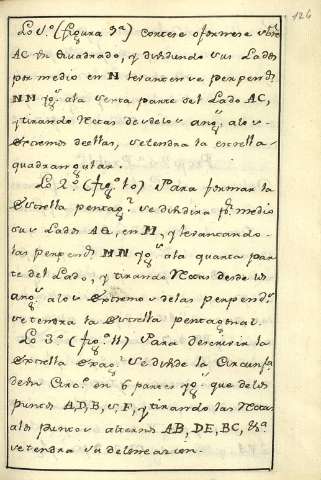 126
Lo 1.º (figura 9ª) Conter o formese
AC Un Quadrado, y dividiendo sus Lados
por medio en N levantense perpend.s
NM yg.s ala sesta parte del Lado AC,
y tirando Rectas desdelos ang.s alos
extremos deellas, setendra la estrella
quadrangular.
Lo 2.º (fig.ª 10) Para formar la
Estrella pentag.l se dividira p.r medio
sus Lados AB, en M, y levantando
las perpend.s MN yg.s ala quarta par
te del Lado, y tirando Rectas desde los
ang.s alos Extremos delas perpend.s
setendra la Estrella pentagonal.
Lo 3.º (fig.ª 11) Para describir la
Estrella Exag.l Se divide la Circunf.a
de Un Circ.º en 6 partes yg.s que delos
puntos A, D, B, F, y tirando las Rectas
alos puntos alternos AB, DE, BC, &.a
setendra su delineacion.